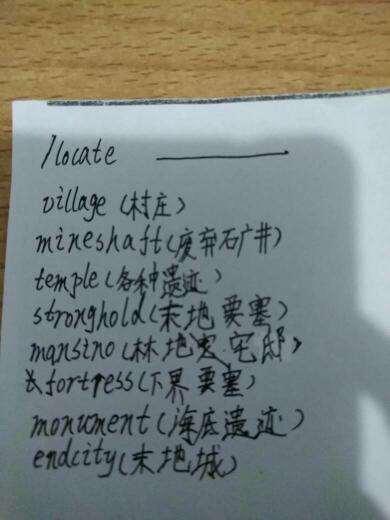 /locate ————
village(村庄)
mineshaft(废弃石广井)
temple(各种遗迹)
stronghold(末地要塞)
mansino(林地宅邸)
fortress(下界要塞)
monument(海底遗迹)
endcity(末地城)